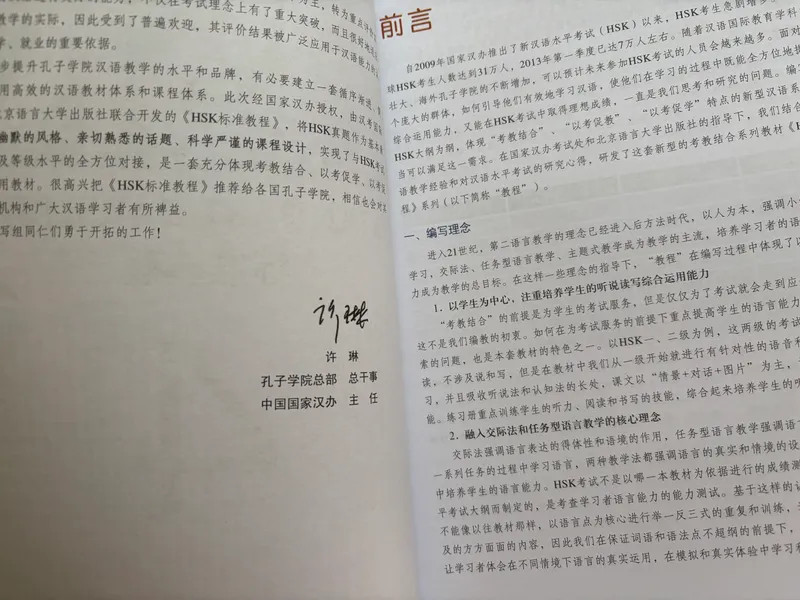 教学的实际，因此受到了普遍欢迎，其评价结果被广泛应用于汉语能力的
学、就业的重要依据。
步提升孔子学院汉语教学的水平和品牌，有必要建立一套循序渐进、
用高效的汉语教材体系和课程体系。此次经国家汉办授权，由汉考国际
北京语言大学出版社联合开发的《HSK标准教程》，将HSK真题作为基本
幽默的风格、亲切熟悉的话题、科学严谨的课程设计，实现了与HSK考
及等级水平的全方位对接，是一套充分体现考教结合、以考促学、以考促
用教材。很高兴把《HSK标准教程》推荐给各国孔子学院，相信也会对其
机构和广大汉语学习者有所裨益。
写组同仁们勇于开拓的工作！
许琳
许 琳
孔子学院总部 总干事
中国国家汉办 主 任
前言
自2009年国家汉办推出了新汉语水平考试（HSK）以来，HSK考生急剧增多
球HSK考生人数达到31万人，2013年第一季度已达7万人左右。随着汉语国际教育学科
壮大、海外孔子学院的不断增加，可以预计未来参加HSK考试的人员会越来越多。面对
个庞大的群体，如何引导他们有效地学习汉语，使他们在学习的过程中既能全方位地
综合运用能力，又能在HSK考试中取得理想成绩，一直是我们思考和研究的问题。编
HSK大纲为纲，体现“考教结合”、“以考促教”、“以考促学”特点的新型汉语系
当可以满足这一需求。在国家汉办考试处和北京语言大学出版社的指导下，我们结合
语教学经验和对汉语水平考试的研究心得，研发了这套新型的考教结合系列教材《H
程》系列（以下简称“教程”）。
一、编写理念
进入21世纪，第二语言教学的理念已经进入后方法时代，以人为本，强调小
学习，交际法、任务型语言教学、主题式教学成为教学的主流，培养学习者的语
力成为教学的总目标。在这样一些理念的指导下，“教程”在编写过程中体现了以
1. 以学生为中心，注重培养学生的听说读写综合运用能力
“考教结合”的前提是为学生的考试服务，但是仅仅为了考试就会走到应
这不是我们编教的初衷。如何在为考试服务的前提下重点提高学生的语言能力
索的问题，也是本套教材的特色之一。以HSK一、二级为例，这两级的考试
读，不涉及说和写，但是在教材中我们从一级开始就进行有针对性的语音和
习，并且吸收听说法和认知法的长处，课文以“情景+对话+图片”为主，
能。练习册重点训练学生的听力、阅读和书写的技能，综合起来培养学生的听
2. 融入交际法和任务型语言教学的核心理念
交际法强调语言表达的得体性和语境的作用，任务型语言教学强调语言
一系列任务的过程中学习语言，两种教学法都强调语言的真实和情境的设
中培养学生的语言能力。HSK考试不是以哪一本教材为依据进行的成绩测
平考试大纲而制定的，是考查学习者语言能力的能力测试。基于这样的认
不能像以往教材那样，以语言点为核心进行举一反三式的重复和训练，
及的方方面面的内容，因此我们在保证词语和语法点不超纲的前提下，
让学习者体会在不同情境下语言的真实运用，在模拟和真实体验中学习和